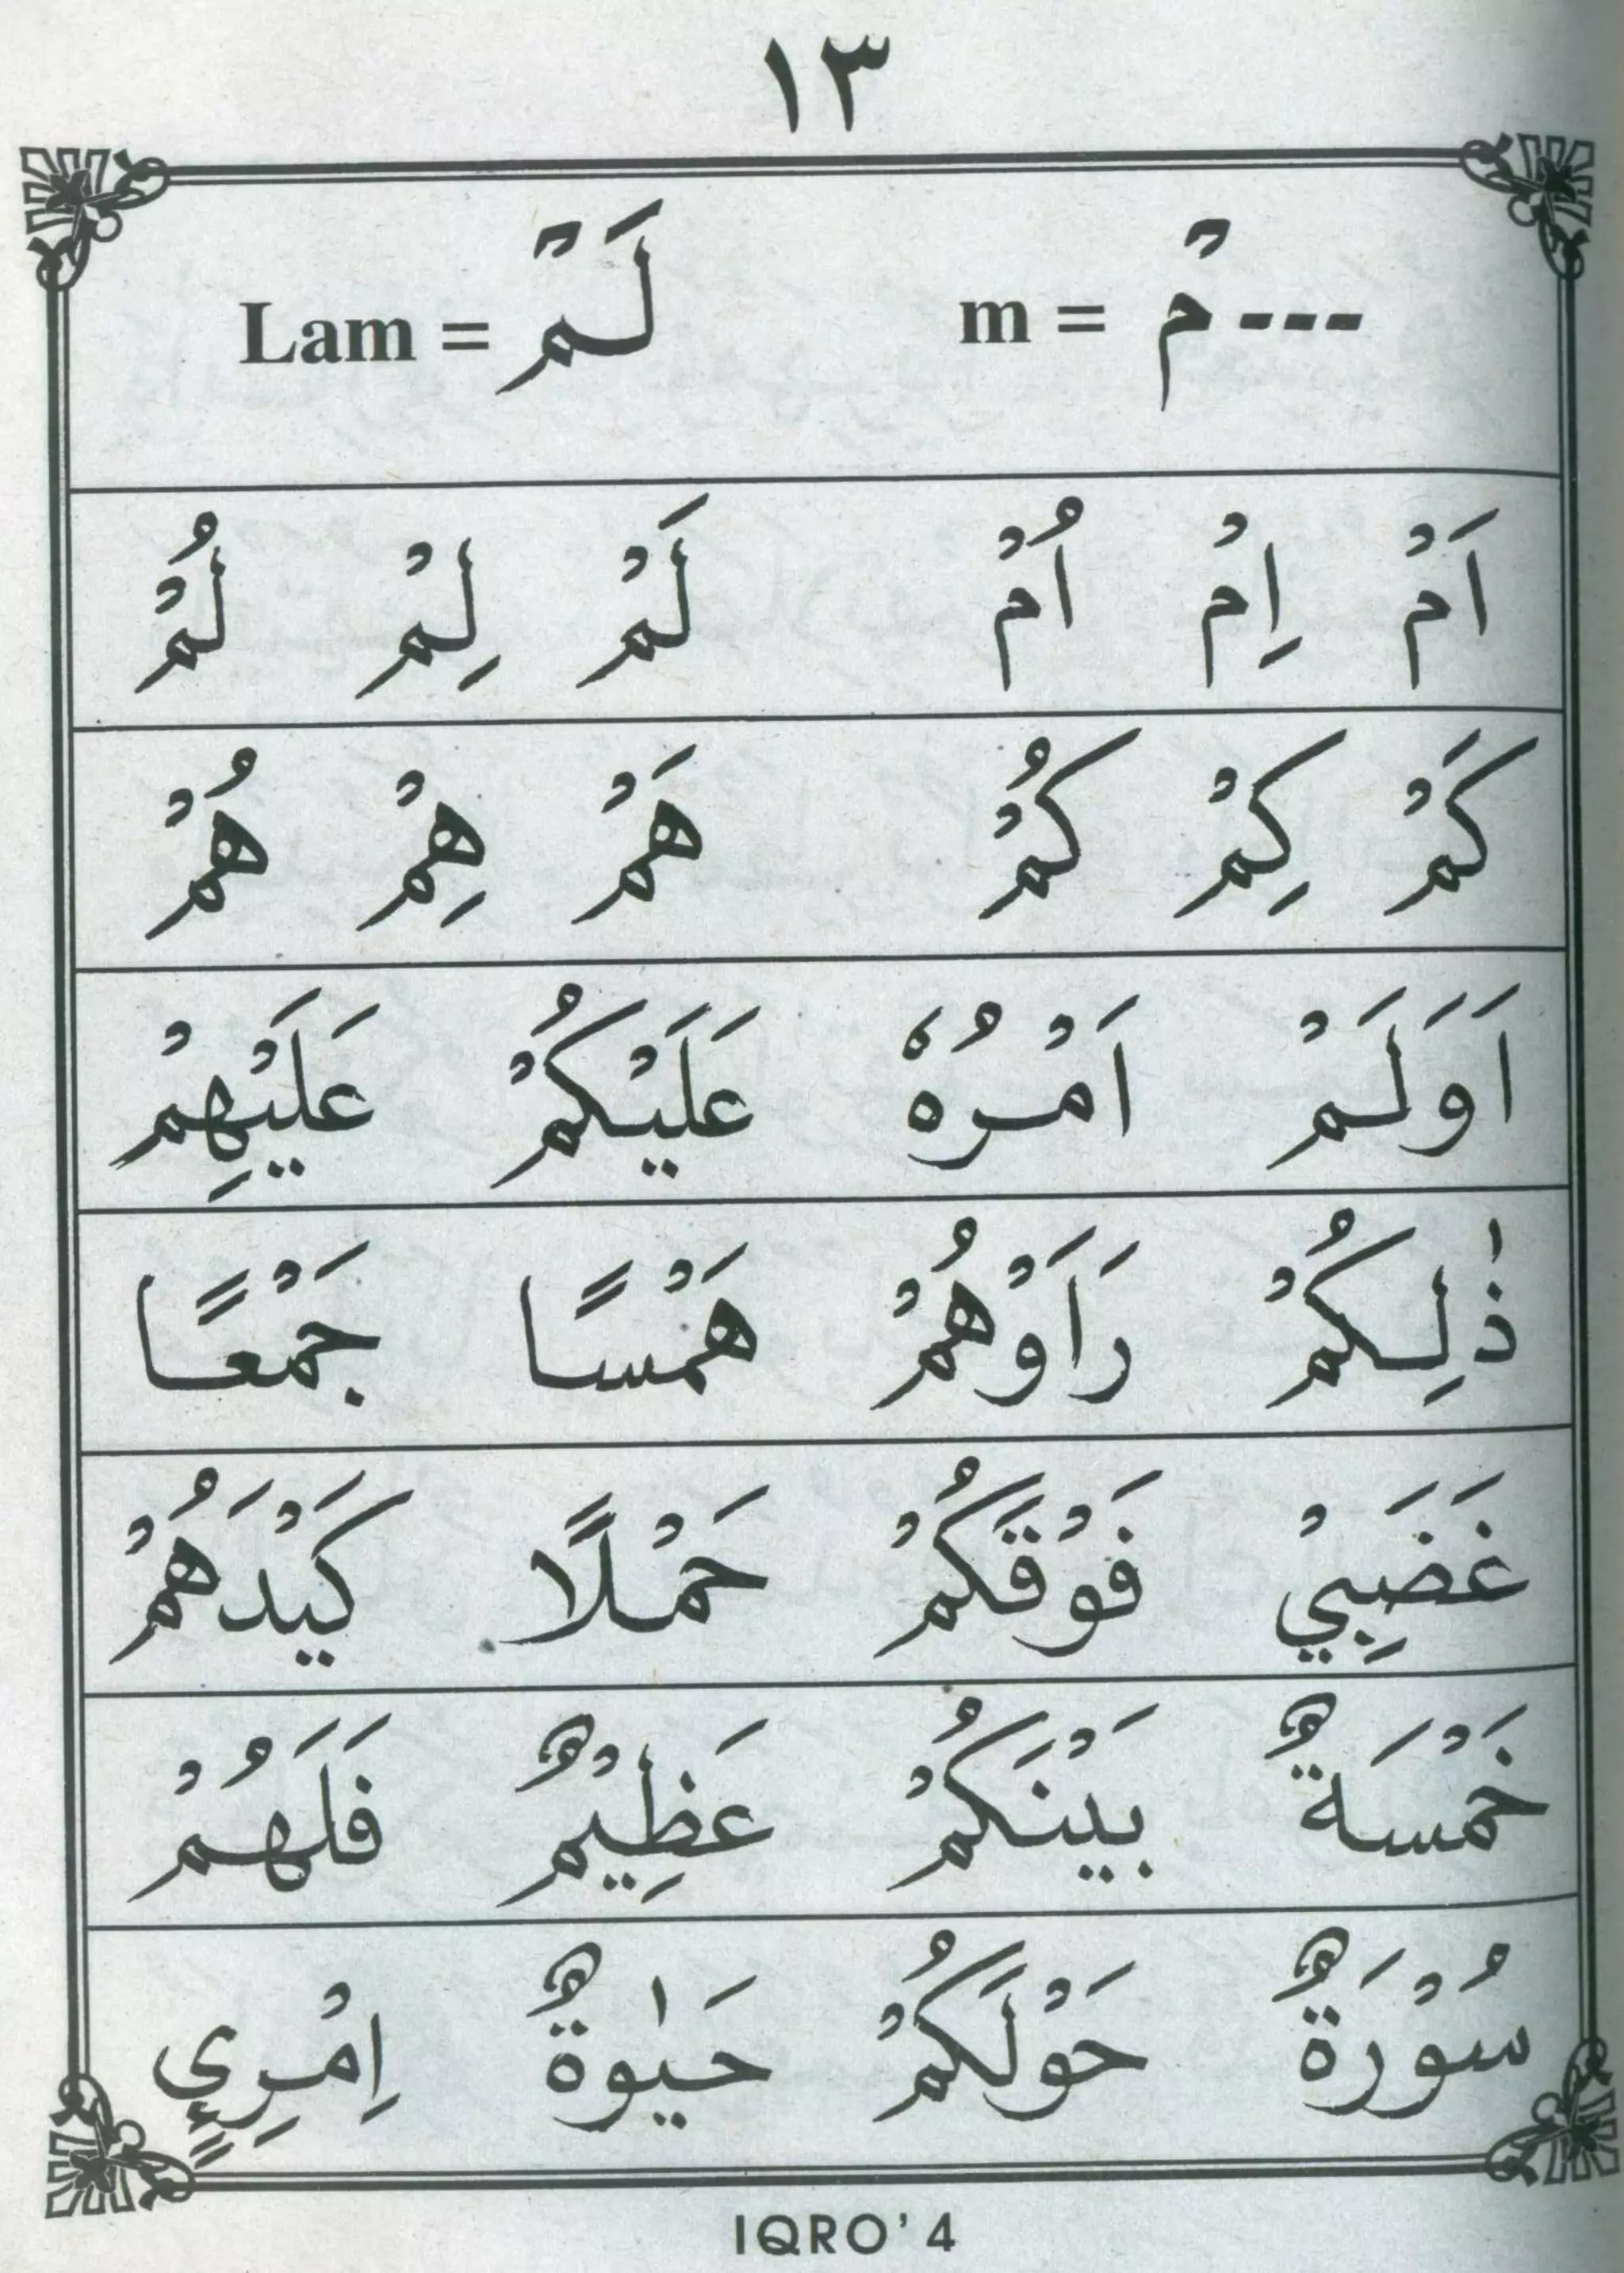 ١٣
---مْ = m لَمْ = Lam
اَمْ اِمْ اُمْ لَمْ لِمْ لُمْ
كَمْ كِمْ كُمْ هَمْ هِمْ هُمْ
اَوَلَمْ اَمْرُهُ عَلَيْكُمْ عَلَيْهِمْ
ذٰلِكُمْ رَاَوْهُمْ هَمْسًا جَمْعًا
غَضَبِيْ فَوْقَكُمْ حَمْلًا كَيْدَهُمْ
خَمْسَةٌ بَيْنَكُمْ عَظِيْمٌ فَلَهُمْ
سُوْرَةٌ حَوْلَكُمْ حَيٰوةٌ اِمْرِئٍ
IQRO' 4